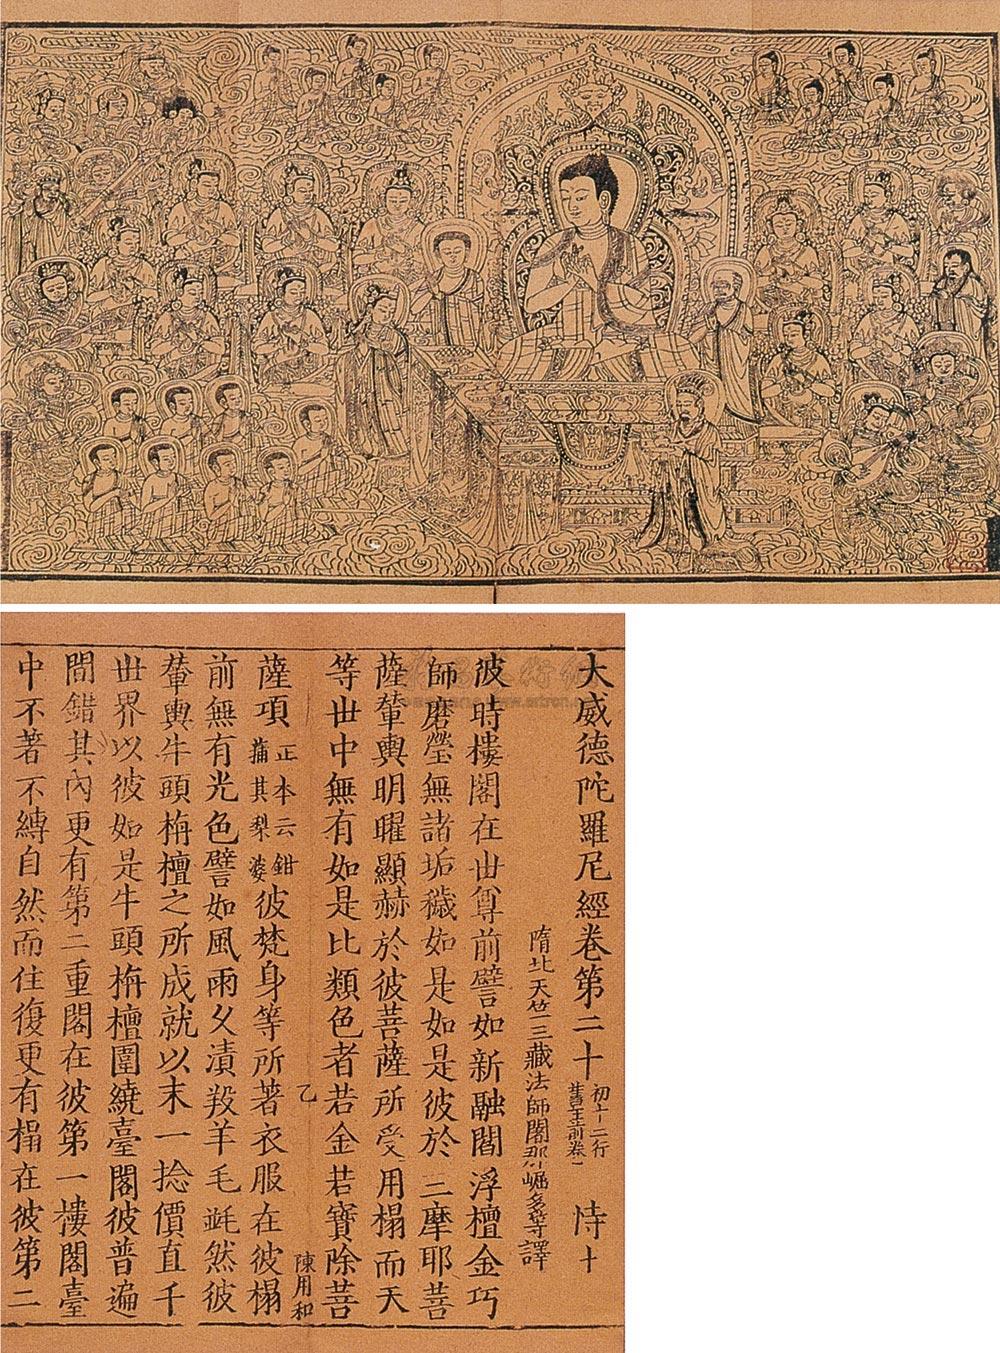 大威德陀羅尼經卷第二十 初十二行 恃十
隋北天竺三藏法師闍那崛多等譯
彼時樓閣在世尊前譬如新融閻浮檀金巧
師磨瑩無諸垢穢如是如是彼於三摩耶菩
薩輦輿明曜顯赫於彼菩薩所受用榻而天
等世中無有如是比類色者若金若寶除菩
乙 陳用和
薩項 正本云鉗蒲其梨婆 彼梵身等所著衣服在彼榻
前無有光色譬如風雨久漬羖羊毛毼然彼
輦輿牛頭栴檀之所成就以末一捻價直千
世界以彼如是牛頭栴檀圍繞臺閣彼普遍
間錯其內更有第二重閣在彼第一樓閣臺
中不著不縛自然而住復更有榻在彼第二